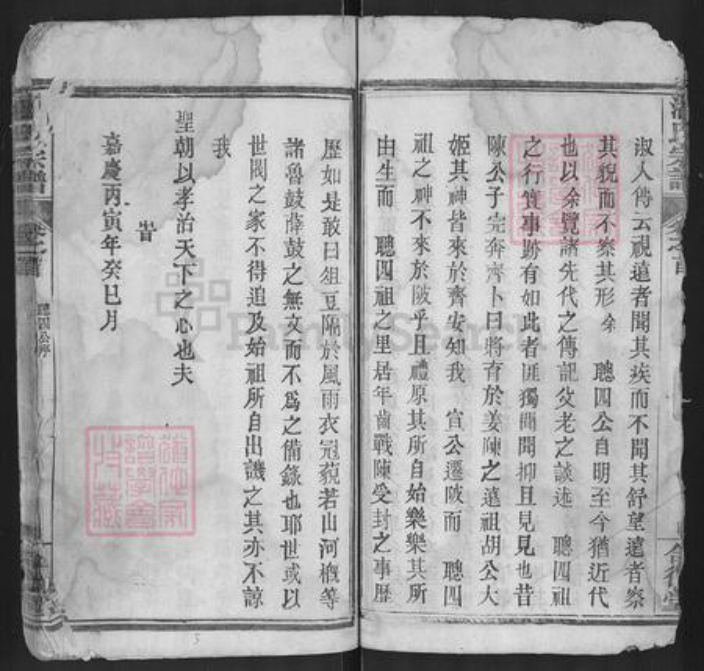 淑人傳云視遠者聞其疾而不聞其舒望遠者察
其貌而不察其形余　聰四公自明至今猶近代
也以余覽諸先代之傳記父老之談述　聰四祖
之行實事跡有如此者匪獨聞抑且見見也昔
陳公子完奔齊卜曰將育於姜陳之遠祖胡公大
姬其神皆來於齊安知我　宣公遷陂而　聰四
祖之神不來於陂乎且禮原其所自始樂樂其所
由生而　聰四祖之里居年齒戰陳受封之事歷
歷如是敢曰俎豆隔於風雨衣冠藐若山河概等
諸魯鼓薛鼓之無文而不為之備錄也耶世或以
世閥之家不得追及始祖所自出譏之其亦不諒
我
聖朝以孝治天下之心也夫
旹
嘉慶丙寅年癸巳月
宗譜
卷之首
聰四公序
氏宗譜
卷之首
FamilySearch